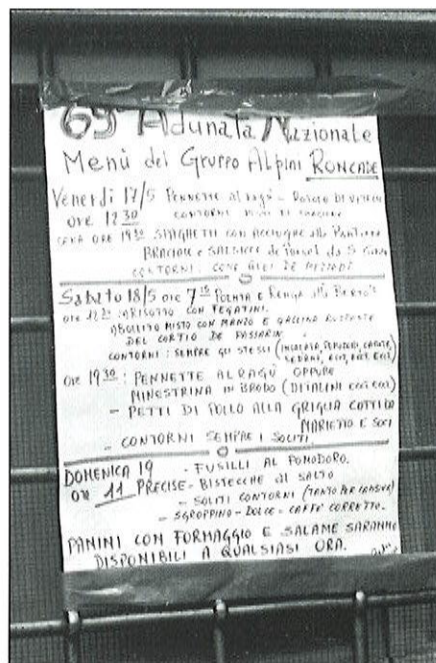 69ª Adunata Nazionale
Menù del Gruppo Alpini RONCADE
Venerdi 17/5 PENNETTE al ragù -
ore 12 30 CONTORNI
CENA ORE 19 30 SPAGHETTI CON ACCIUGHE alla
BRACIOLE e SALSICCE
CONTORNI: COME
Sabato 18/5 ore 7 15 POLENTA E Renga
ore 12 30: RISOTTO CON FEGATINI.
ABOLLITO MISTO CON MANZO E GALLINA RUSPANTE
DEL CORTIO DE PASSARIN
CONTORNI: SEMPRE GLI STESSI (INSALATA, POMODORI, CAROTE,
SEDANI, ECC, ECC, ECC)
ORE 19 30: PENNETTE AL RAGÙ OPPURE
MINESTRINA IN BRODO (DITALINI ECC ECC)
- PETTI DI POLLO ALLA GRIGLIA COTTI DA
MARIETTO E SOCI
- CONTORNI SEMPRE I SOLITI.
DOMENICA 19 - FUSILLI AL POMODORO.
ORE 11 PRECISE - BISTECCHE AL SALTO
- SOLITI CONTORNI (TANTO PER
- SGROPPINO - DOLCE - CAFFÈ CORRETTO.
PANINI CON FORMAGGIO E SALAME SARANNO
DISPONIBILI A QUALSIASI ORA.